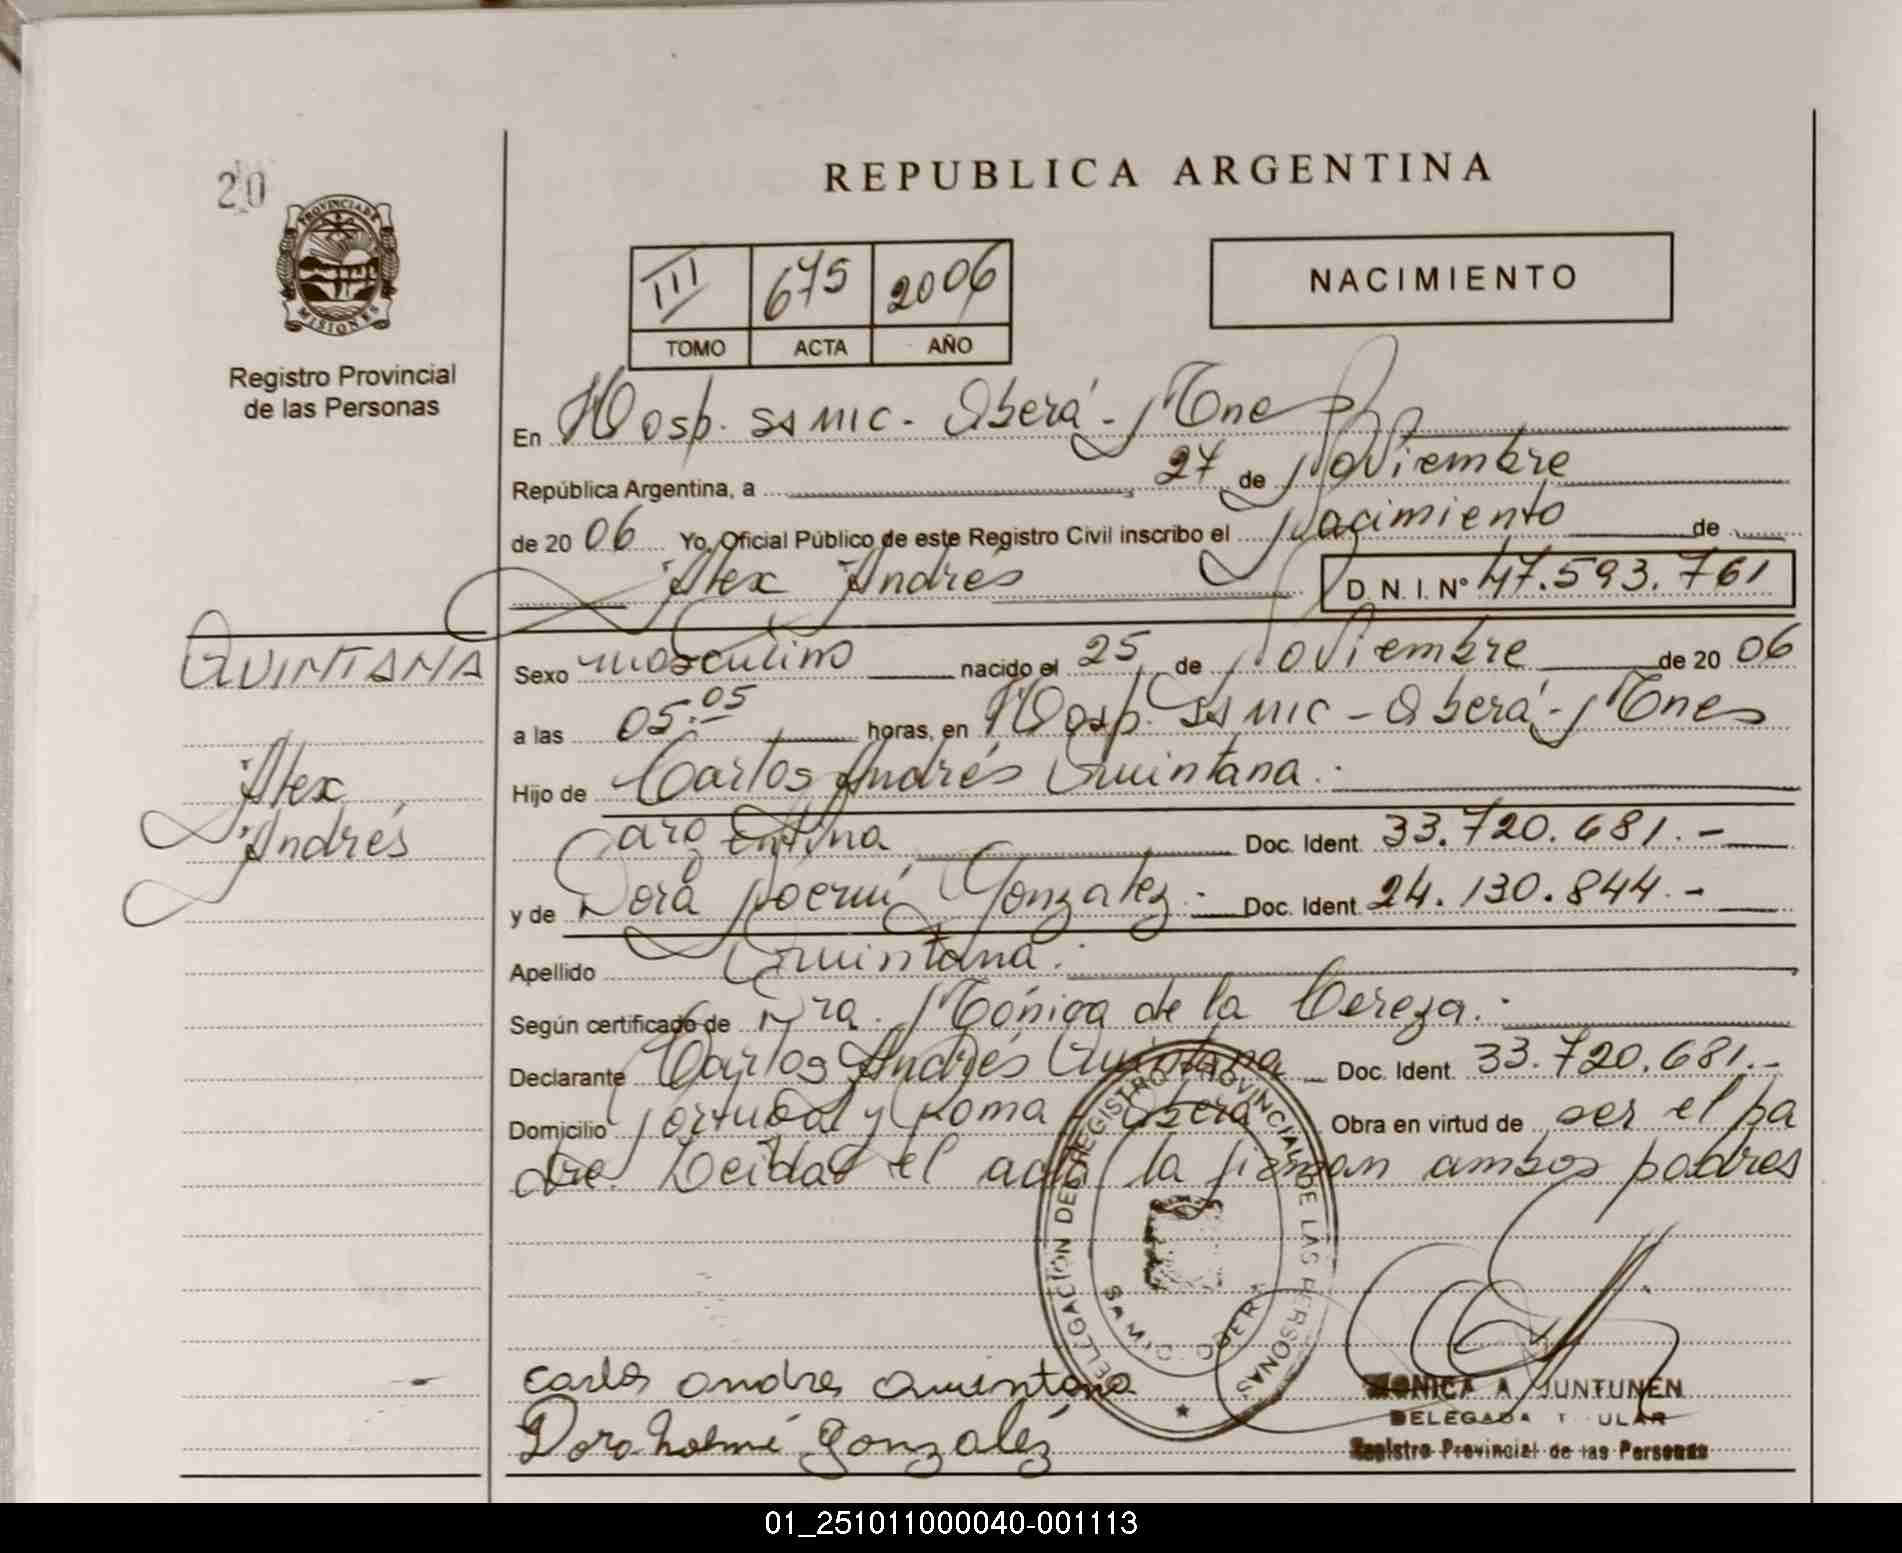 20
PROVINCIA DE
MISIONES
Registro Provincial
de las Personas
REPUBLICA ARGENTINA
III 675 2006
TOMO ACTA AÑO
NACIMIENTO
En Hosp. SAMIC - Oberá - Mnes
República Argentina, a 27 de Noviembre
de 2006 Yo, Oficial Público de este Registro Civil inscribo el Nacimiento de
Alex Andrés D. N. I. N° 47.593.761
QUINTANA
Alex
Andrés
Sexo masculino nacido el 25 de Noviembre de 2006
a las 05:05 horas, en Hosp. SAMIC - Oberá - Mnes
Hijo de Carlos Andrés Quintana.-
argentina Doc. Ident. 33.720.681.-
y de Dora Noemí Gonzalez.- Doc. Ident. 24.130.844.-
Apellido Quintana.
Según certificado de Dra. Mónica de la Cereza.-
Declarante Carlos Andrés Quintana Doc. Ident. 33.720.681.-
Domicilio Portugal y Roma - Oberá Obra en virtud de ser el pa
dre. Leída el acta la firman ambos padres
DELEGACIÓN DEL REGISTRO PROVINCIAL DE LAS PERSONAS
carlos andres Quintana
Dora gonzaléz
MONICA A. JUNTUNEN
DELEGADA TITULAR
Registro Provincial de las Personas
01_251011000040-001113